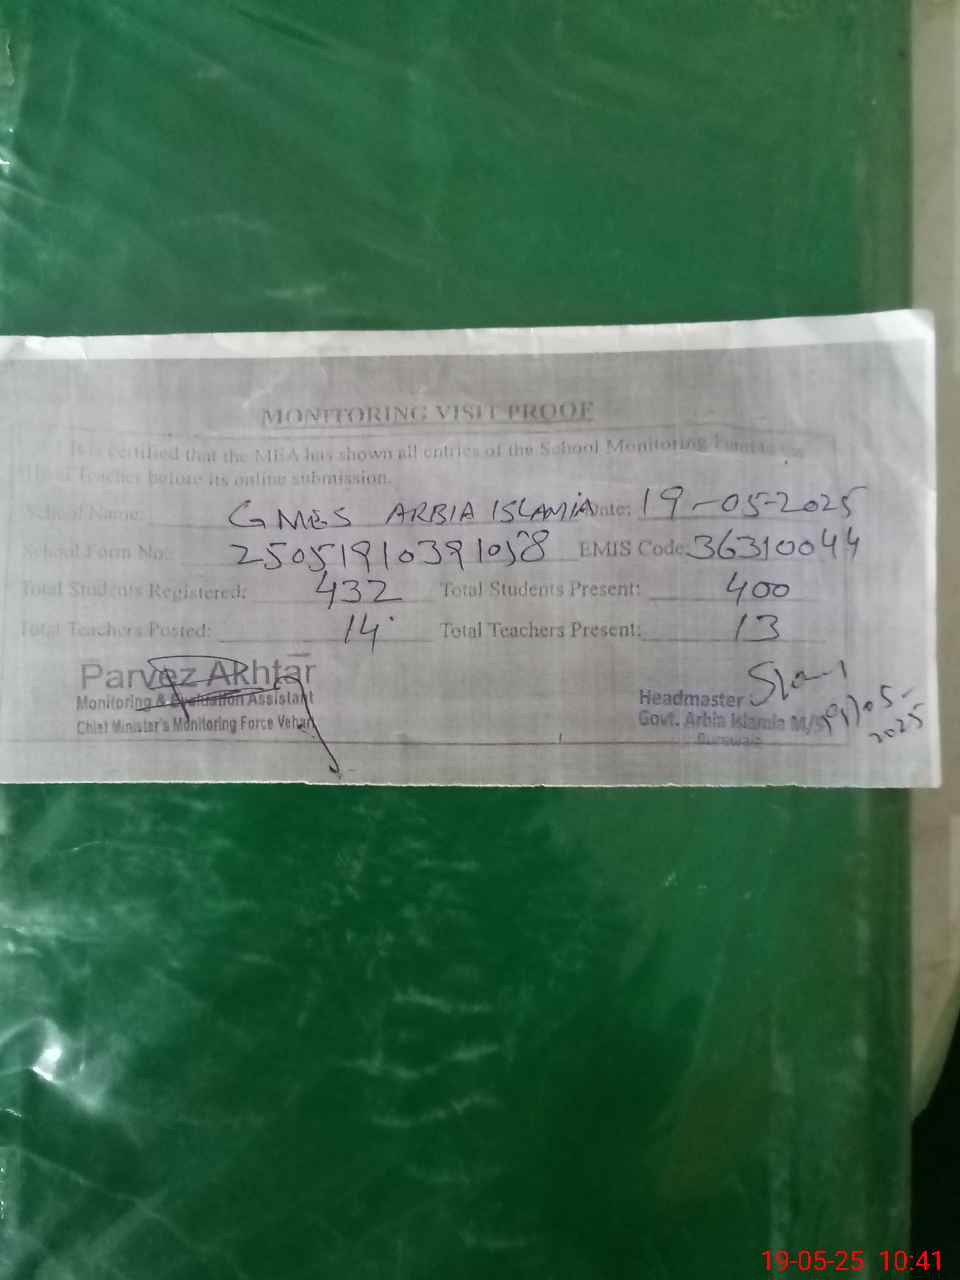 MONITORING VISIT PROOF
It is certified that the MEA has shown all entries of the School Monitoring Form to the
Head Teacher before its online submission.
School Name: GMES ARBIA ISLAMIA Date: 19-05-2025
School Form No.: 25051910391058 EMIS Code: 36310044
Total Students Registered: 432 Total Students Present: 400
Total Teachers Posted: 14 Total Teachers Present: 13
Parvez Akhtar
Monitoring & Evaluation Assistant
Chief Minister's Monitoring Force Vehari
Headmaster
Govt. Arbia Islamia M/S
Burewala
2025
19-05-25 10:41